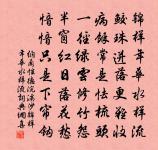 錦樣年華水樣流
鮫珠迸落更難收
病餘常是怯梳頭
一徑綠雲修竹怨
半窗紅日落花愁
愔愔只是下帘鈎
納蘭性德浣溪沙錦樣
年華水樣流